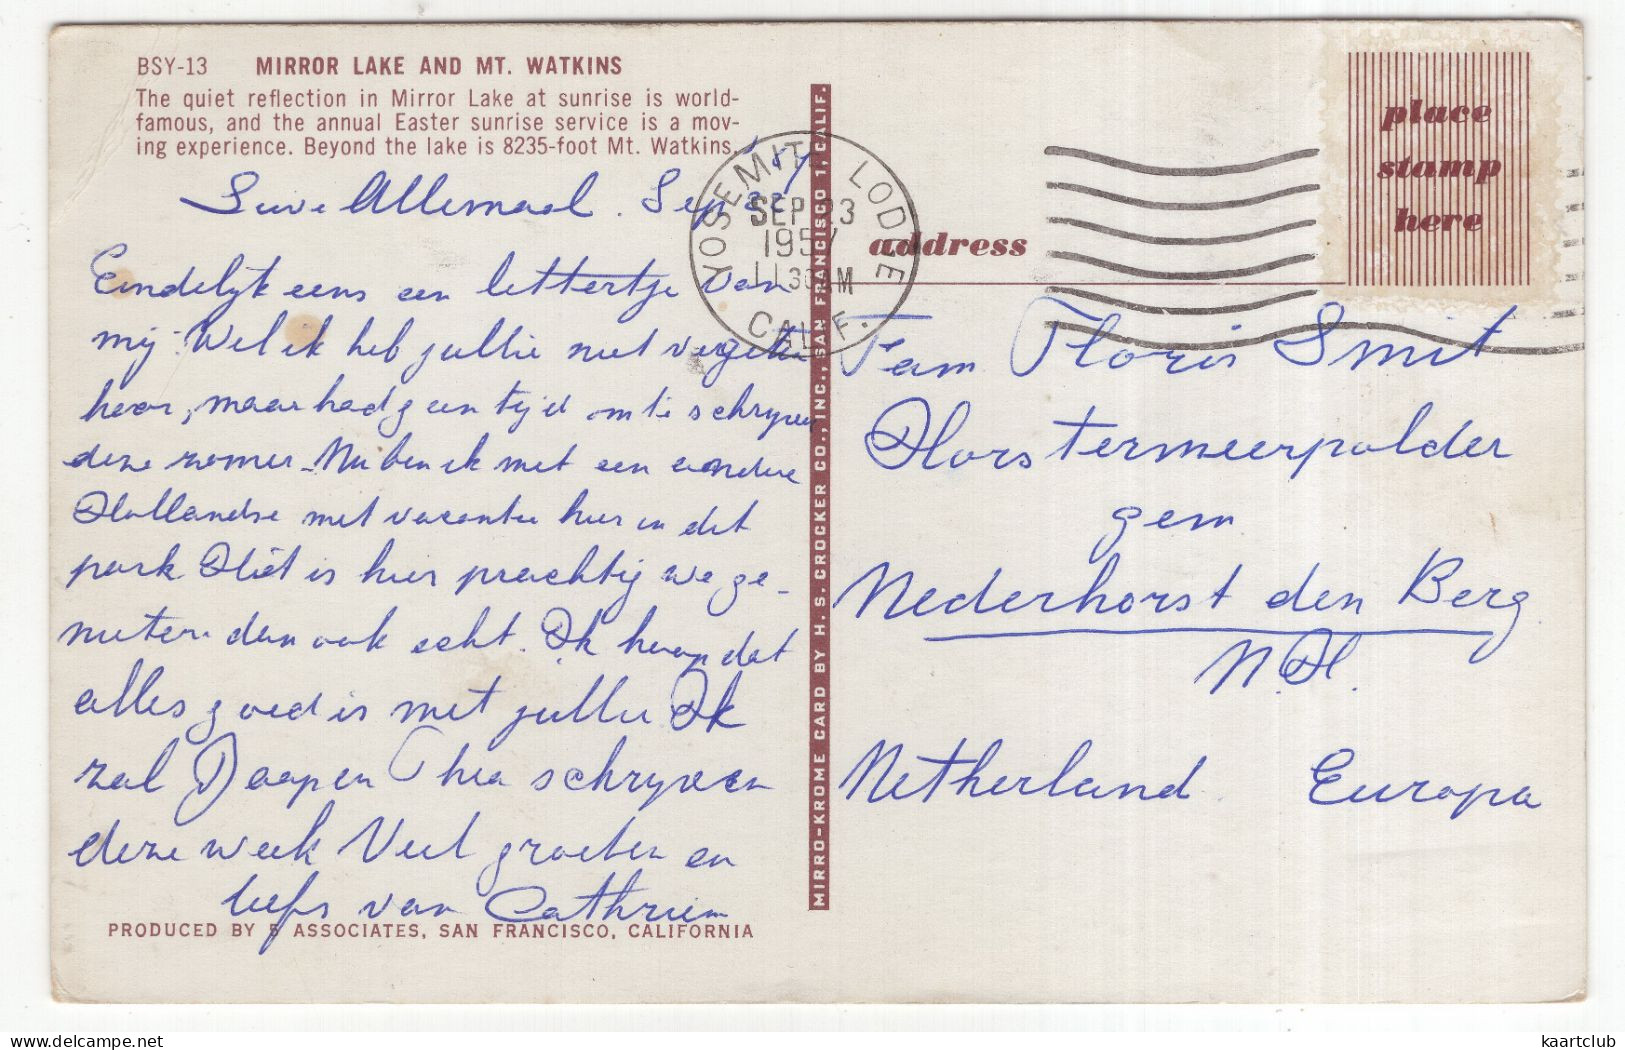 BSY-13 MIRROR LAKE AND MT. WATKINS
The quiet reflection in Mirror Lake at sunrise is world-
famous, and the annual Easter sunrise service is a mov-
ing experience. Beyond the lake is 8235-foot Mt. Watkins.
Lieve Allemaal. Sep
Eindelijk eens een lettertje van
mij. Wel ik heb jullie niet vergeten
hoor, maar had geen tijd om te schrijven
deze zomer. Nu ben ik met een andere
Hollandse met vacantie hier in dit
park Het is hier prachtig we ge-
nieten dan ook echt. Ik hoop dat
alles goed is met jullie Ik
zal Jaap en Thea schryven
deze week Veel groeten en
liefs van Cathrien
PRODUCED BY 5 ASSOCIATES, SAN FRANCISCO, CALIFORNIA
MIRRO-KROME CARD BY H. S. CROCKER CO., INC., SAN FRANCISCO 1, CALIF.
YOSEMITE LODGE
SEP 23
1957
11 30 AM
CALIF.
place
stamp
here
address
Fam Floris Smit
Horstermeerpolder
gem
Nederhorst den Berg
N.H.
Netherland Europa
kaartclub